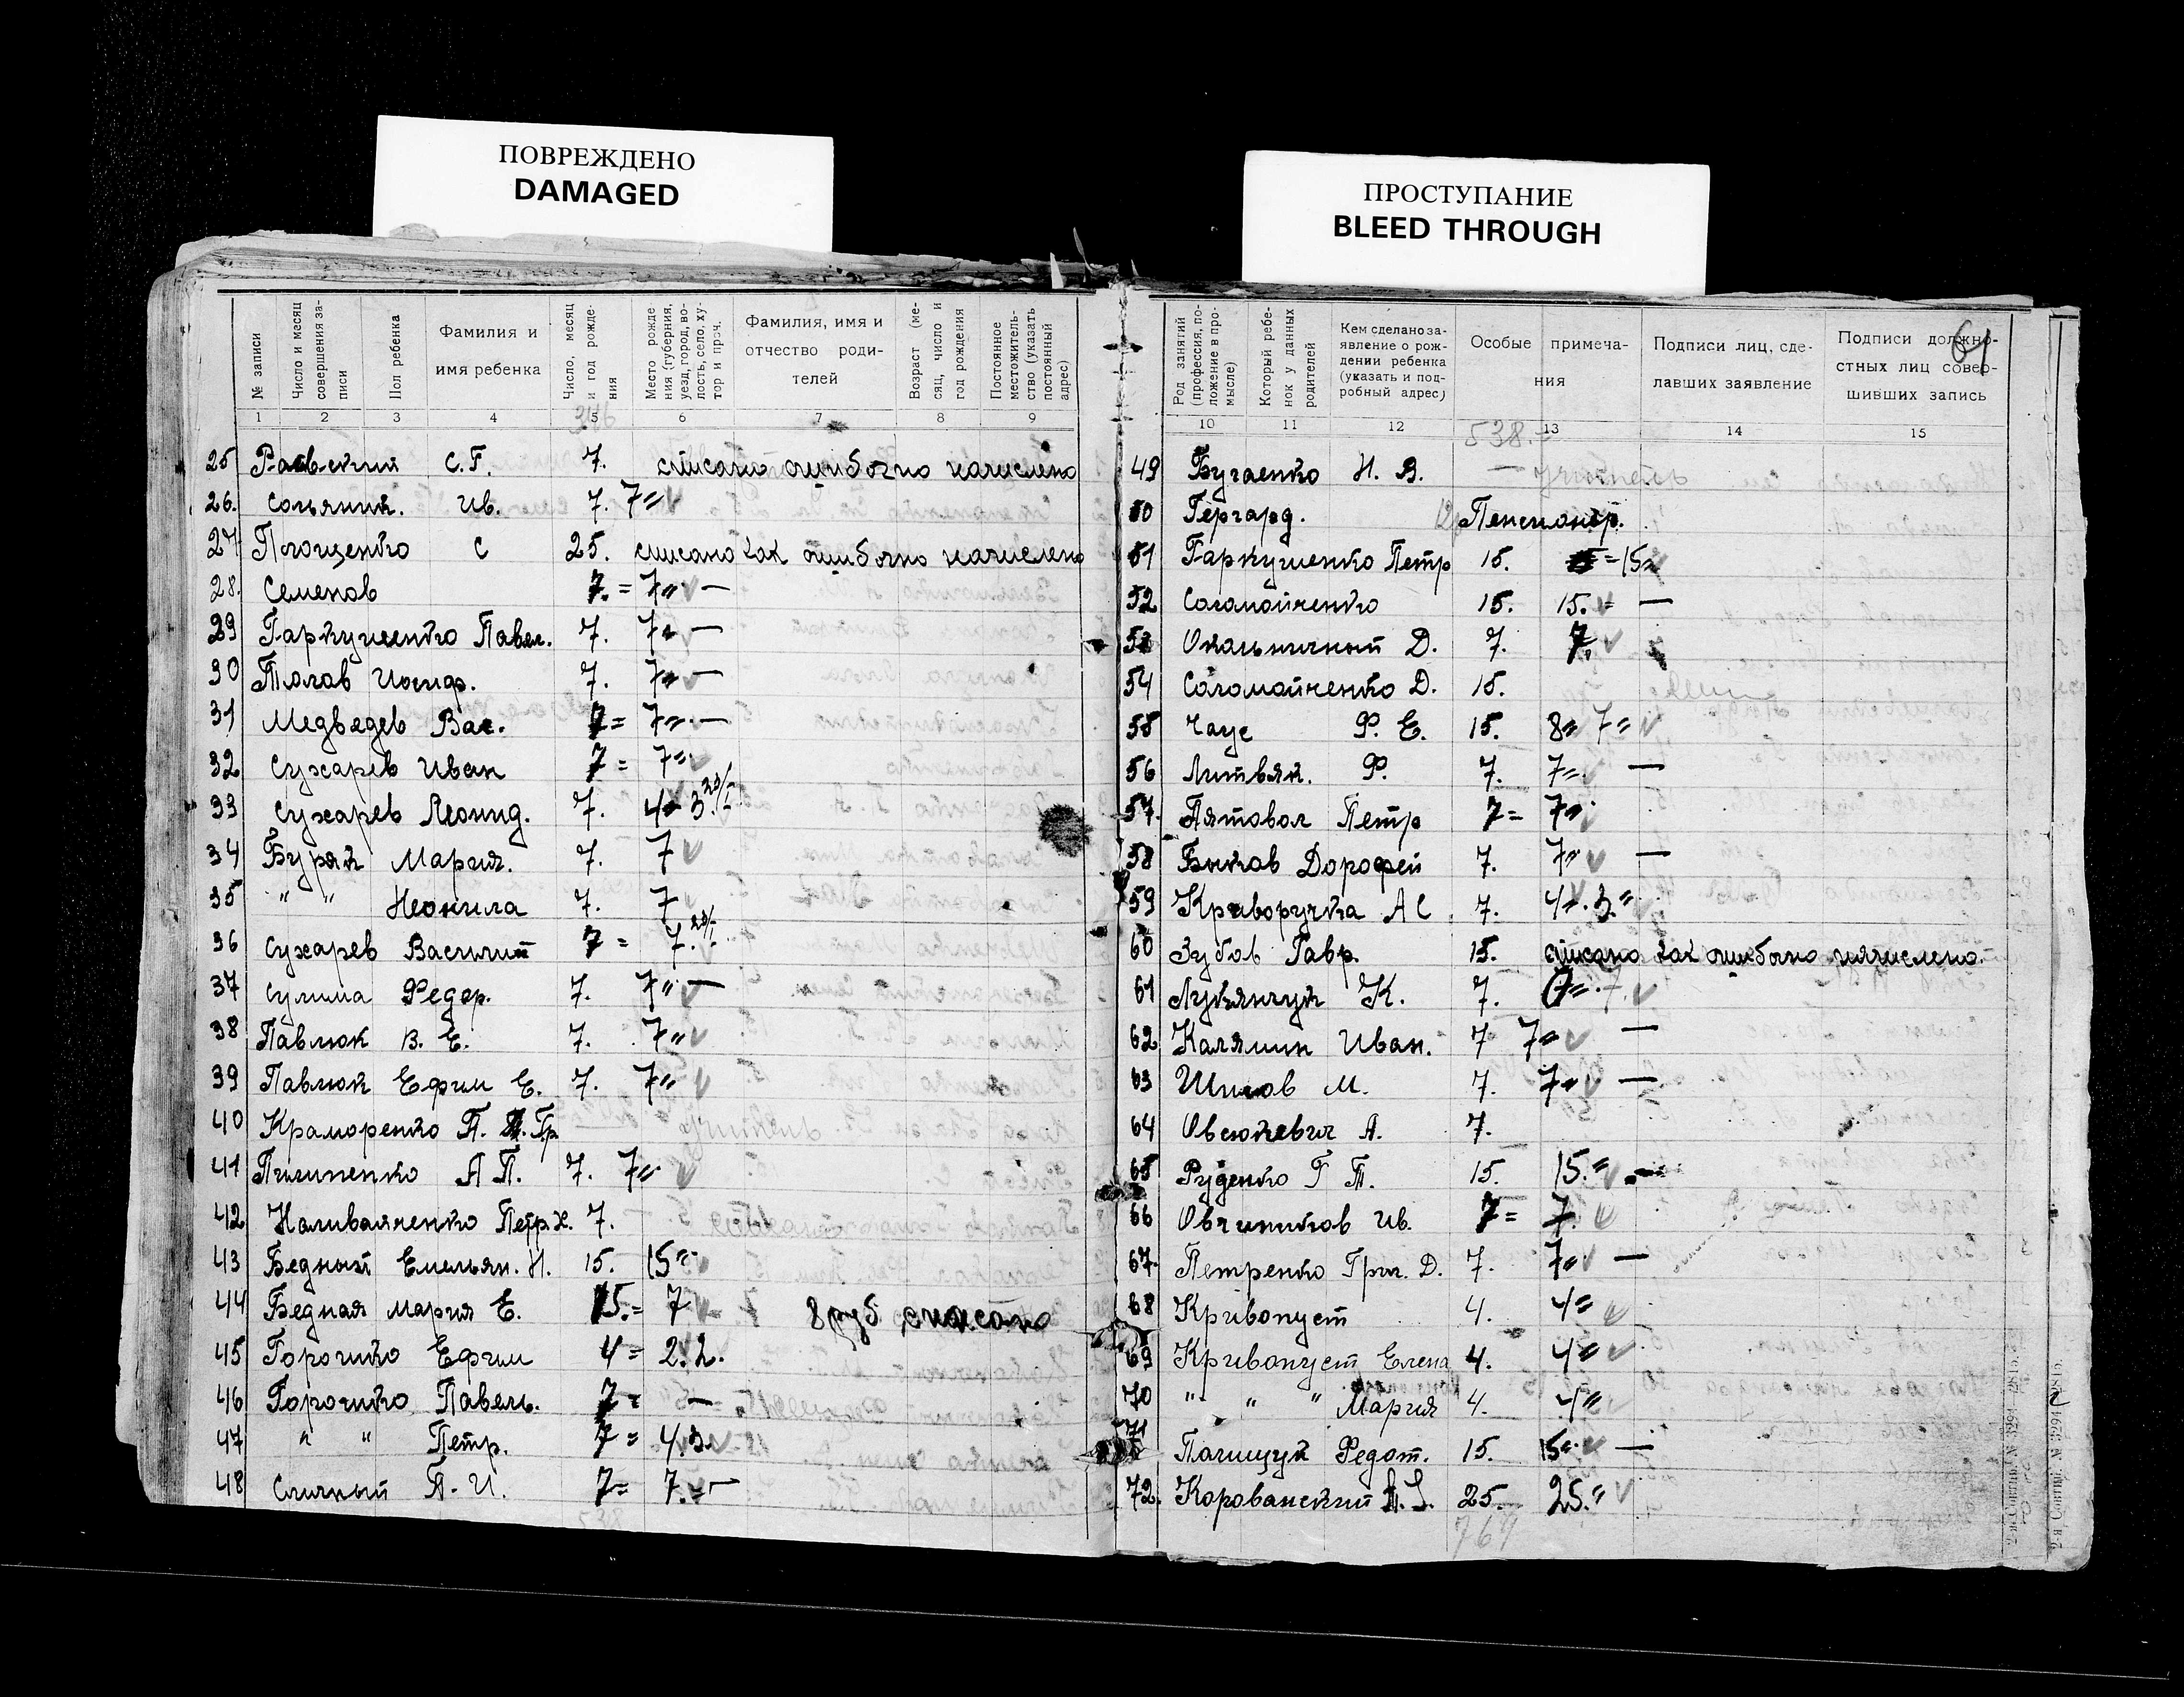 ПОВРЕЖДЕНО
DAMAGED
ПРОСТУПАНИЕ
BLEED THROUGH
№ записи
Число и месяц совершения записи
Пол ребенка
Фамилия и имя ребенка
Число, месяц и год рождения
Место рождения (губерния, уезд, город, волость, село, хутор и проч.
Фамилия, имя и отчество родителей
Возраст (месяц, число и год рождения
Постоянное местожительство (указать постоянный адрес)
1 2 3 4 5 6 7 8 9
25 Раевский С.Г. 7. списано ошибочно начислено
26. Сольяний. Ив. 7. 7=
27 С 25. списано как ошибочно начислено
28. Семенов 7. = 7" —
29 Гаркушенко Павел. 7. 7" —
30 Толав Иосиф. 7. 7" —
31 Медведев Вас. 7= 7" —
32 Сухарев Иван 7= 7="
33 Сухарев Леонид. 7. 4= 3.
34 Буряк Мария. 7. 7
35 " " Неонила 7. 7
36 Сухарев Василий 7= 7.
37 Сулима Федор. 7. 7" —
38 Павлюк В. Е. 7. 7"
39 Павлюк Ефим Е. 7. 7"
40 Краморенко П. Гр
41 Пилипенко А П. 7. 7"
42 Наливайченко Петр Х. 7.
43 Бедный Емельян. И. 15. 15="
44 Бедная Мария Е. 15.= 7 8 руб списано
45 Горошко Ефим 4= 2.2.
46 Горошко Павель. 7= —
47 " " Петр. 7= 4.3.
48 Сличный П. И. 7= 7.= —
Род занятий (профессия, положение в промысле)
Который ребенок у данных родителей
Кем сделано заявление о рождении ребенка (указать и подробный адрес)
Особые примечания
Подписи лиц, сделавших заявление
Подписи должностных лиц совершивших запись
61
10 11 12 13 14 15
538.
49 Бугаенко Н. В. — учитель
50 Гергард. Пенсионер.
51 Гаркушенко Петр 15. =15=
52 Соломойченко 15. 15. = —
53 Окольничный Д. 7. 7.
54 Соломойченко Д. 15.
55 Чаус Ф. Е. 15. 8" 7=
56 Литвяк. Ф. 7. 7=. —
57. Пятовол Петр 7= 7"
58 Быков Дорофей 7. 7" —
59 Криворучка А С 7. 4=. 3."
60 Зубов Гавр. 15. списано как ошибочно начислено.
61 Лукянчук К. 7. 7=
62 Калямин Иван. 7 7= —
63 Шилов М. 7. 7" —
64 Овсюкевич А. 7.
65 Руденко Г Т. 15. 15." —
66 Овчиников Ив. 7= 7.
67. Петренко Григ. Д. 7. 7" —
68 Кривопуст 4. 4=
69 Кривопуст Елена 4. 4=
70 " " " Мария 4. 4"
71 Полищук Федот. 15. 15=. —
72. Корованский 25. 25."
769